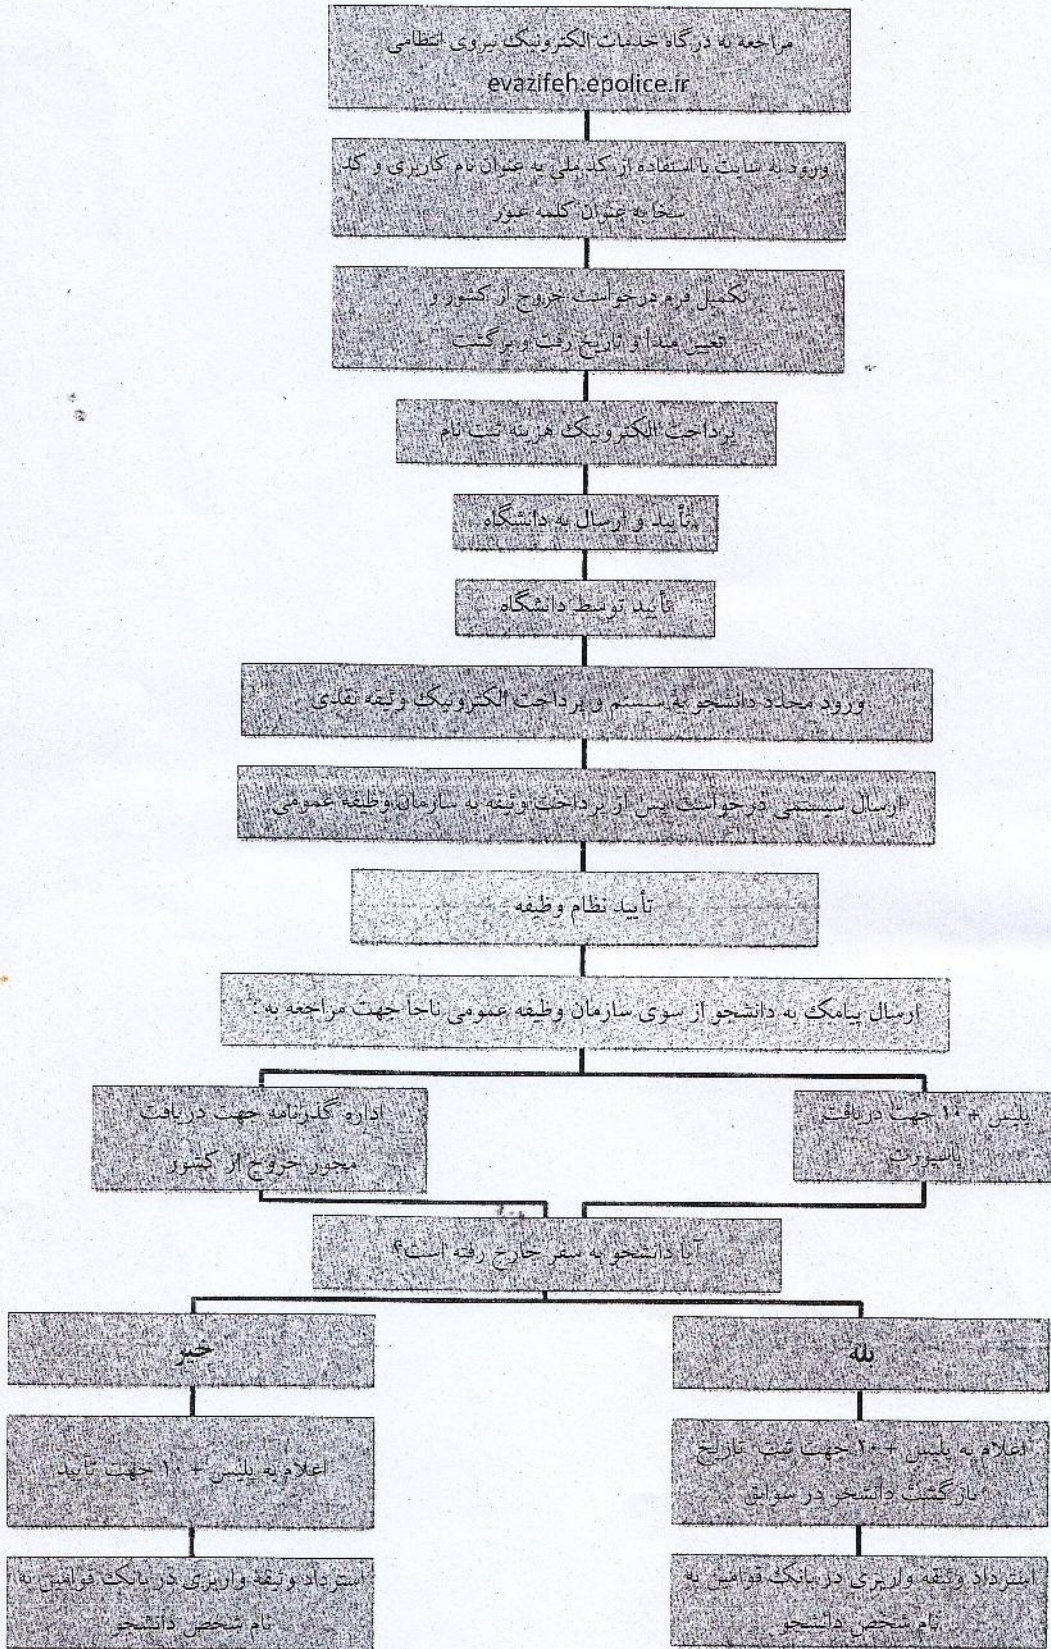 مراجعه به درگاه خدمات الکترونیک نیروی انتظامی
evazifeh.epolice.ir
ورود به سایت با استفاده از کد ملی به عنوان نام کاربری و کد
سخا به عنوان کلمه عبور
تکمیل فرم درخواست خروج از کشور و
تعیین مبدأ و تاریخ رفت و برگشت
پرداخت الکترونیک هزینه ثبت نام
تأیید و ارسال به دانشگاه
تأیید توسط دانشگاه
ورود مجدد دانشجو به سیستم و پرداخت الکترونیک وثیقه نقدی
ارسال سیستمی درخواست پس از پرداخت وثیقه به سازمان وظیفه عمومی
تأیید نظام وظیفه
ارسال پیامک به دانشجو از سوی سازمان وظیفه عمومی ناجا جهت مراجعه به :
پلیس + ۱۰ جهت دریافت
پاسپورت
اداره گذرنامه جهت دریافت
مجوز خروج از کشور
آیا دانشجو به سفر خارج رفته است؟
بله
خیر
اعلام به پلیس + ۱۰ جهت ثبت تاریخ
بازگشت دانشجو در سوابق
اعلام به پلیس + ۱۰ جهت تأیید
استرداد وثیقه واریزی در بانک قوامین به
نام شخص دانشجو
استرداد وثیقه واریزی در بانک قوامین به
نام شخص دانشجو